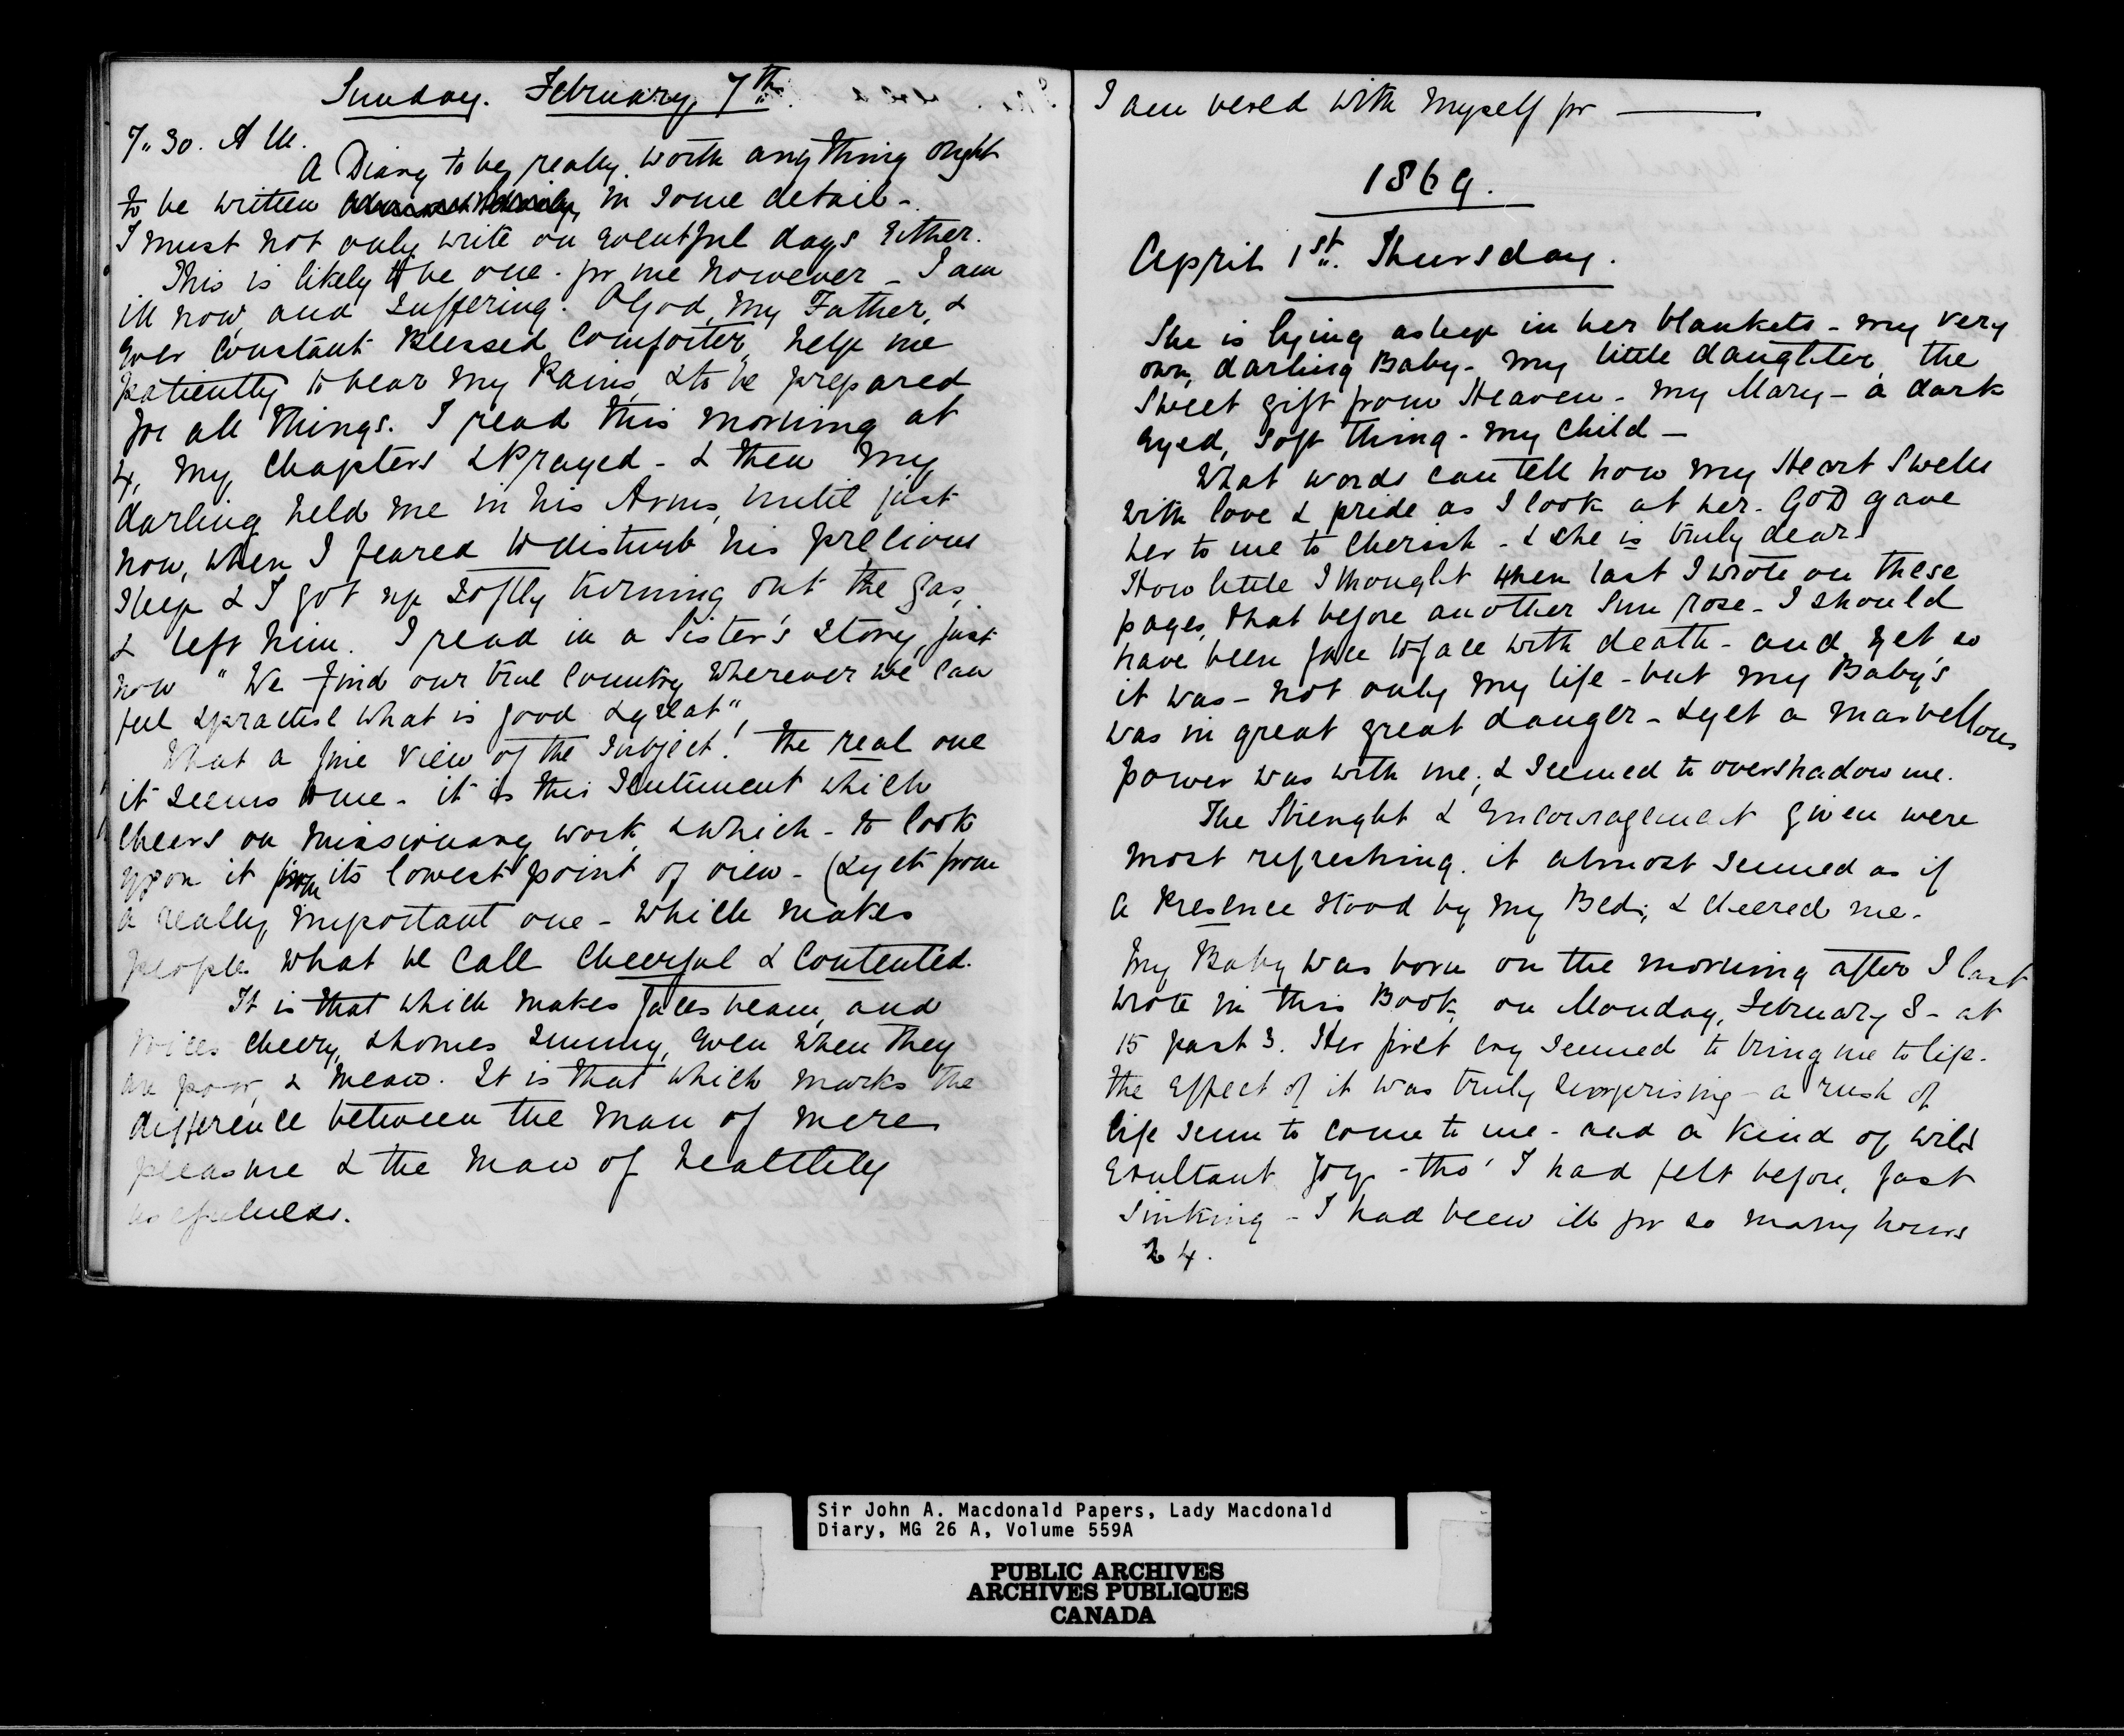 Sunday. February 7th.
7.. 30. A M.
A Diary to be, really, worth anything ought
to be written in some detail -
I must not only write on eventful days either.
This is likely to be one - for me however - I am
ill now, and suffering. O God, my Father, &
ever constant Blessed Comforter, help me
patiently to bear my Pains, & to be prepared
for all things. I read this morning at
4, my Chapters & Prayed - & then my
darling held me in his Arms, until just
now, when I feared to disturb his precious
sleep & I got up softly turning out the gas,
& left him. I read in a Sister's Story, just
now "We find our true Country wherever we can
feel & practise what is good & great",
What a fine view of the subject! the real one
it seems to me - it is this Sentiment which
Cheers on missionary work, & which - to look
upon it from its lowest point of view - (& yet from
a really important one - which makes
people what we call Cheerful & Contented.
It is that which makes faces beam, and
voices cheery, & homes sunny, even when they
are poor, & mean. It is that which marks the
difference between the man of mere
pleasure & the man of healthly
usefulness.
I am vexed with myself for ———
1869.
April 1st.. Thursday.
She is lying asleep in her blankets - my very
own, darling Baby - my little daughter, the
Sweet gift from Heaven - my Mary - a dark
eyed, soft thing - my Child -
What words can tell how my Heart Swells
with love & pride as I look at her - GOD gave
her to me to Cherish - & she is truly dear -
How little I thought when last I wrote on these
pages, that before another Sun rose - I should
have been face to face with death - and yet so
it was - not only my life - but my Baby's
was in great great danger - & yet a marvellous
power was with me, & seemed to overshadow me.
The Strenght & Encouragement given were
most refreshing. it almost seemed as if
a Presence stood by my Bed, & cheered me.
My Baby was born on the morning after I last
wrote in this Book, on Monday, February 8 - at
15 past 3. Her first cry seemed to bring me to life.
the effect of it was truly surprising - a rush of
life seem to come to me - and a kind of wild
Exultant Joy - tho' I had felt before, fast
Sinking - I had been ill for so many hours
24.
Sir John A. Macdonald Papers, Lady Macdonald
Diary, MG 26 A, Volume 559A
PUBLIC ARCHIVES
ARCHIVES PUBLIQUES
CANADA